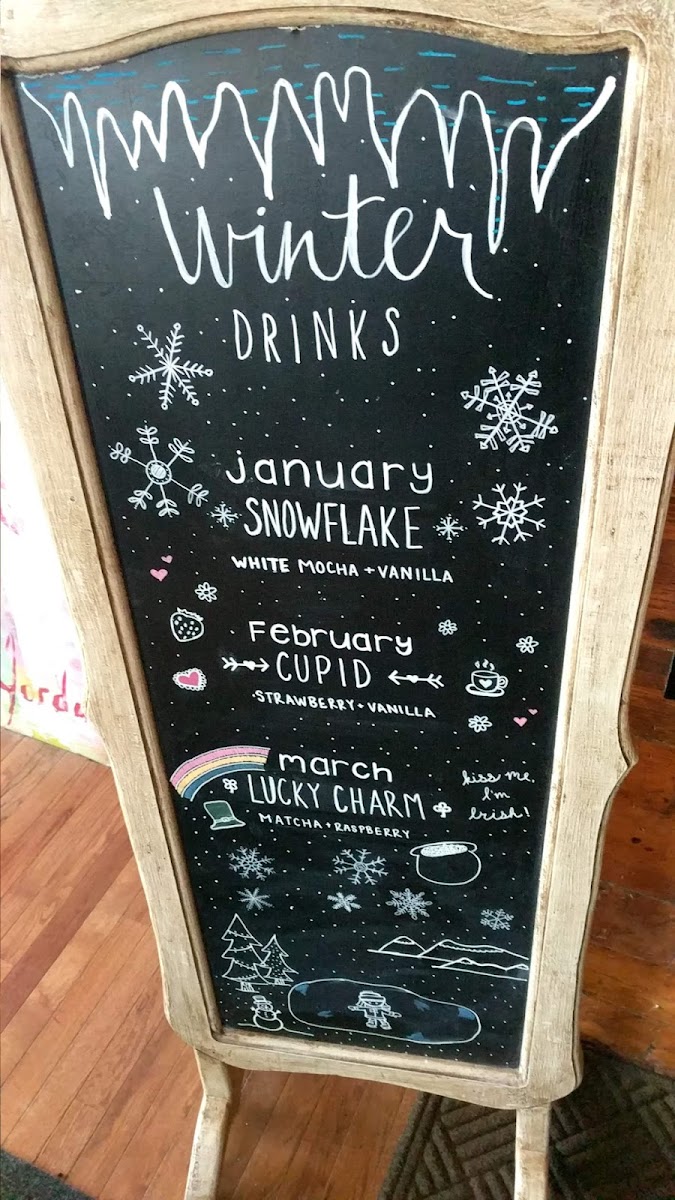 Winter
DRINKS
january
SNOWFLAKE
WHITE MOCHA + VANILLA
February
CUPID
STRAWBERRY + VANILLA
march
LUCKY CHARM
MATCHA + RASPBERRY
kiss me,
I'm
Irish!